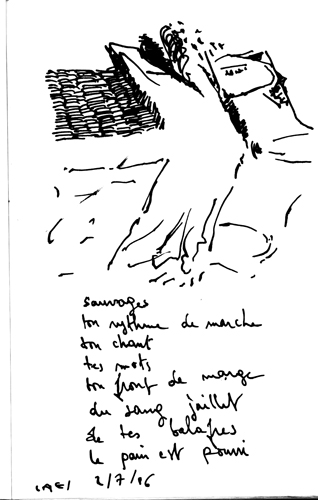 sauvages
ton rythme de marche
ton chant
tes mots
ton front de marge
du sang jaillet
de tes balafres
le pain est pourri
2/7/16